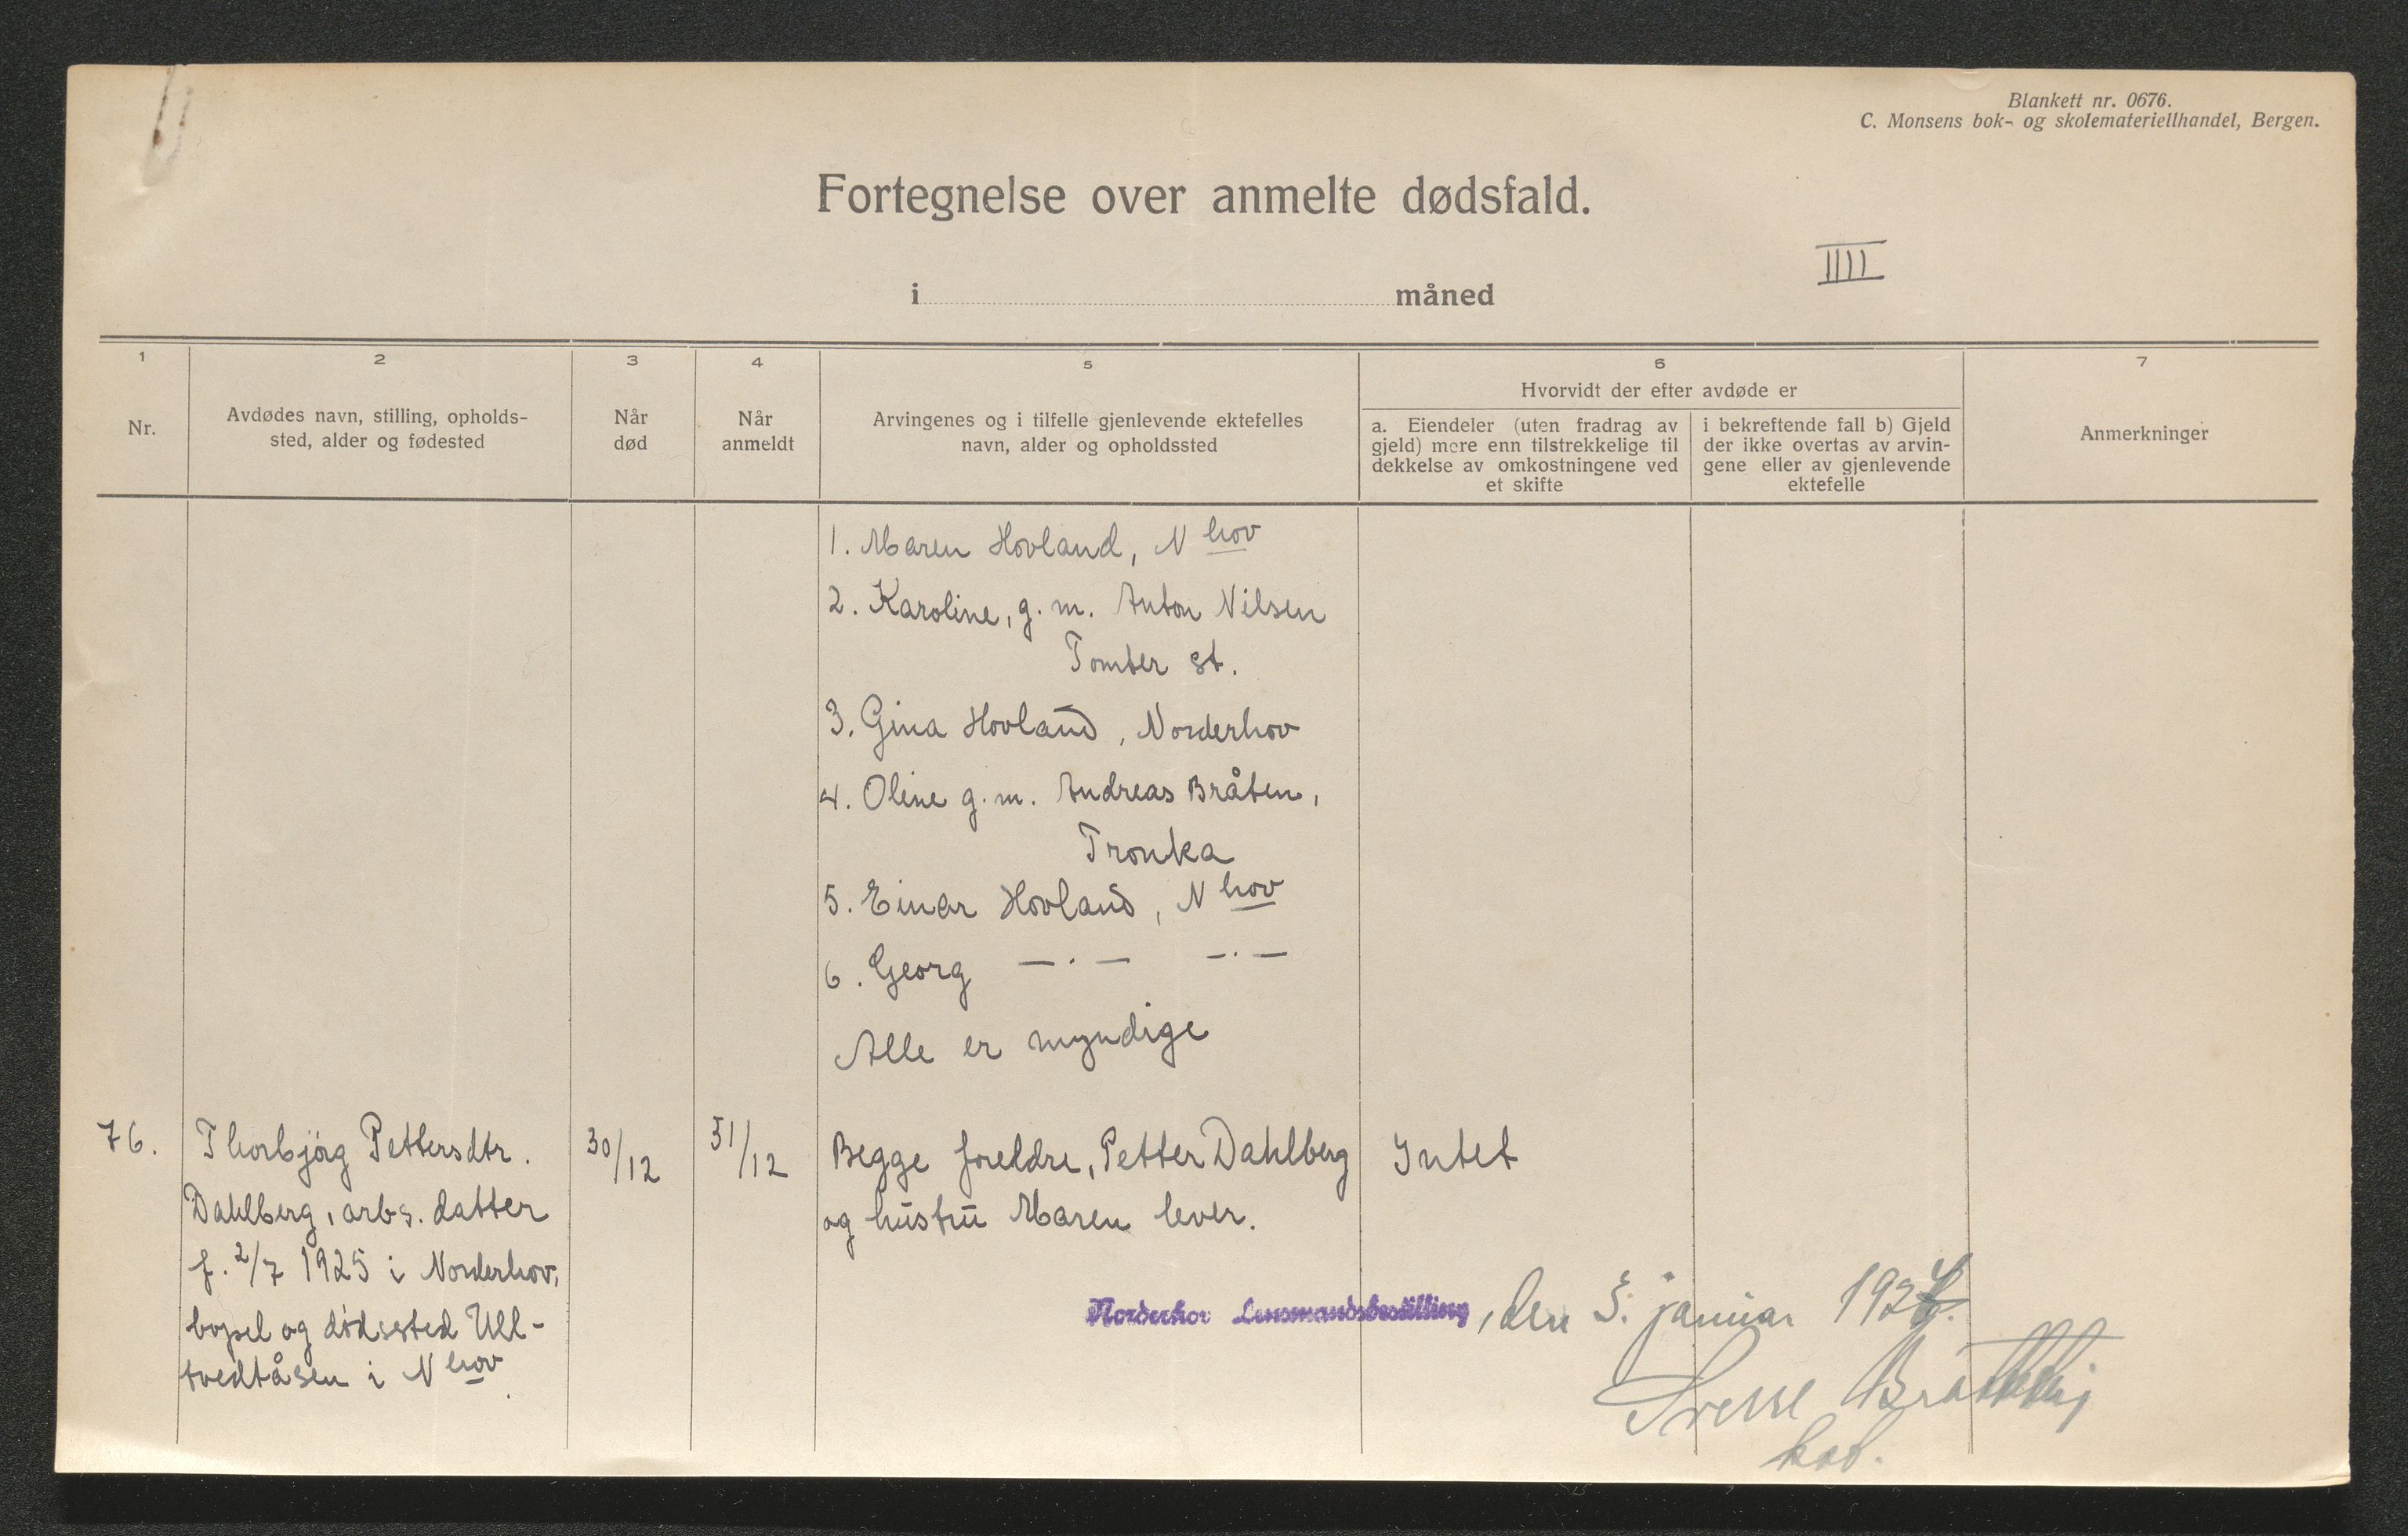 Blankett nr. 0676.
C. Monsens bok- og skolemateriellhandel, Bergen.
Fortegnelse over anmelte dødsfald.
IIII
i måned
1
2
3
4
5
6
7
Nr.
Avdødes navn, stilling, opholds-
sted, alder og fødested
Når
død
Når
anmeldt
Arvingenes og i tilfelle gjenlevende ektefelles
navn, alder og opholdssted
Hvorvidt der efter avdøde er
a. Eiendeler (uten fradrag av
gjeld) mere enn tilstrekkelige til
dekkelse av omkostningene ved
et skifte
i bekreftende fall b) Gjeld
der ikke overtas av arvin-
gene eller av gjenlevende
ektefelle
Anmerkninger
1. Maren Hovland, N hov
2. Karoline, g. m. Anton Nilsen
Tomter st.
3. Gina Hovland, Norderhov
4. Oline g. m. Andreas Bråten,
Tronka
5. Einar Hovland, N hov
6. Georg —·— —·—
Alle er myndige
76.
Thorbjörg Pettersdtr.
Dahlberg, arbs. datter
f. 2/7 1925 i Norderhov,
bopel og dödssted Ull-
tvedtåsen i N hov.
30/12
31/12
Begge foreldre, Petter Dahlberg
og hustru Maren lever.
Intet
Norderhov Lensmandsbestilling, den 5. januar 192